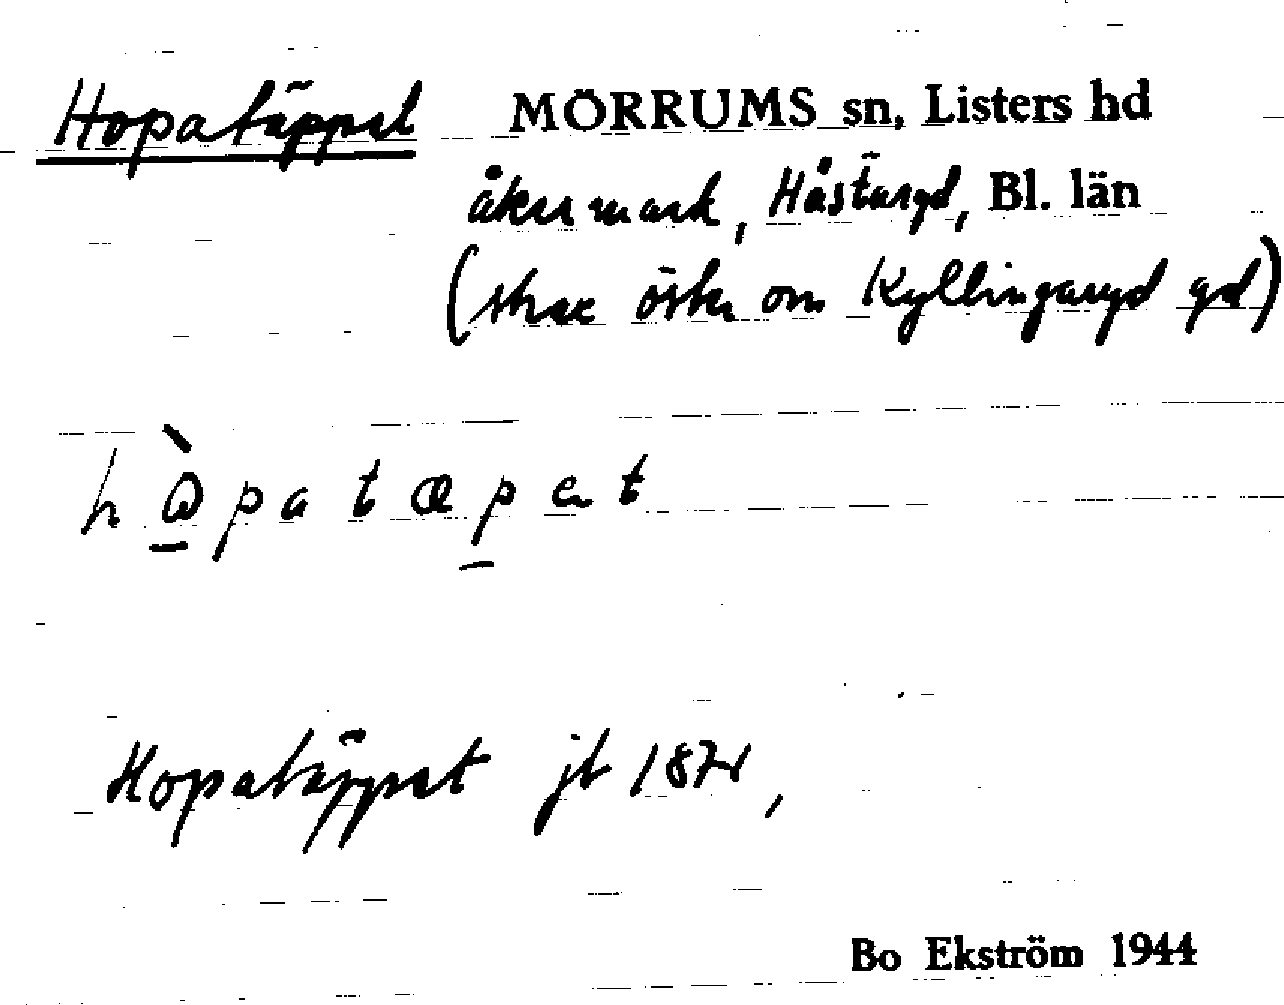 Hopatäppet MÖRRUMS sn, Listers hd
åkermark, Håstaryd, Bl. län
(strax öster om Kyllingaryd gd)
hòpatæpet
Hopatäppet jb 1874,
Bo Ekström 1944